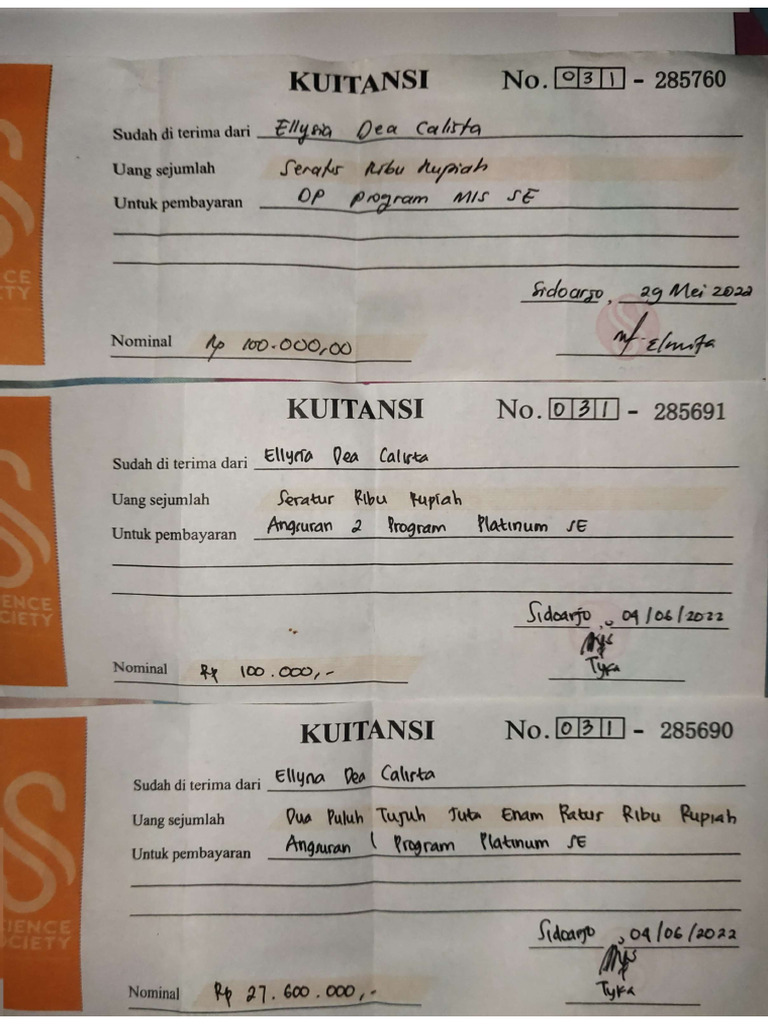 KUITANSI No. 031 - 285760
Sudah di terima dari Ellysia Dea Calista
Uang sejumlah Seratus Ribu Rupiah
Untuk pembayaran DP Program MIS SE
Sidoarjo, 29 Mei 2022
Nominal Rp 100.000,00
CE
TY
KUITANSI No. 031 - 285691
Sudah di terima dari Ellysia Dea Calista
Uang sejumlah Seratus Ribu Rupiah
Untuk pembayaran Angsuran 2 Program Platinum SE
Sidoarjo, 04/06/2022
Tyka
Nominal Rp 100.000,-
ENCE
CIETY
KUITANSI No. 031 - 285690
Sudah di terima dari Ellysia Dea Calista
Uang sejumlah Dua Puluh Tujuh Juta Enam Ratus Ribu Rupiah
Untuk pembayaran Angsuran 1 Program Platinum SE
Sidoarjo, 04/06/2022
Tyka
Nominal Rp 27.600.000,-
IENCE
OCIETY